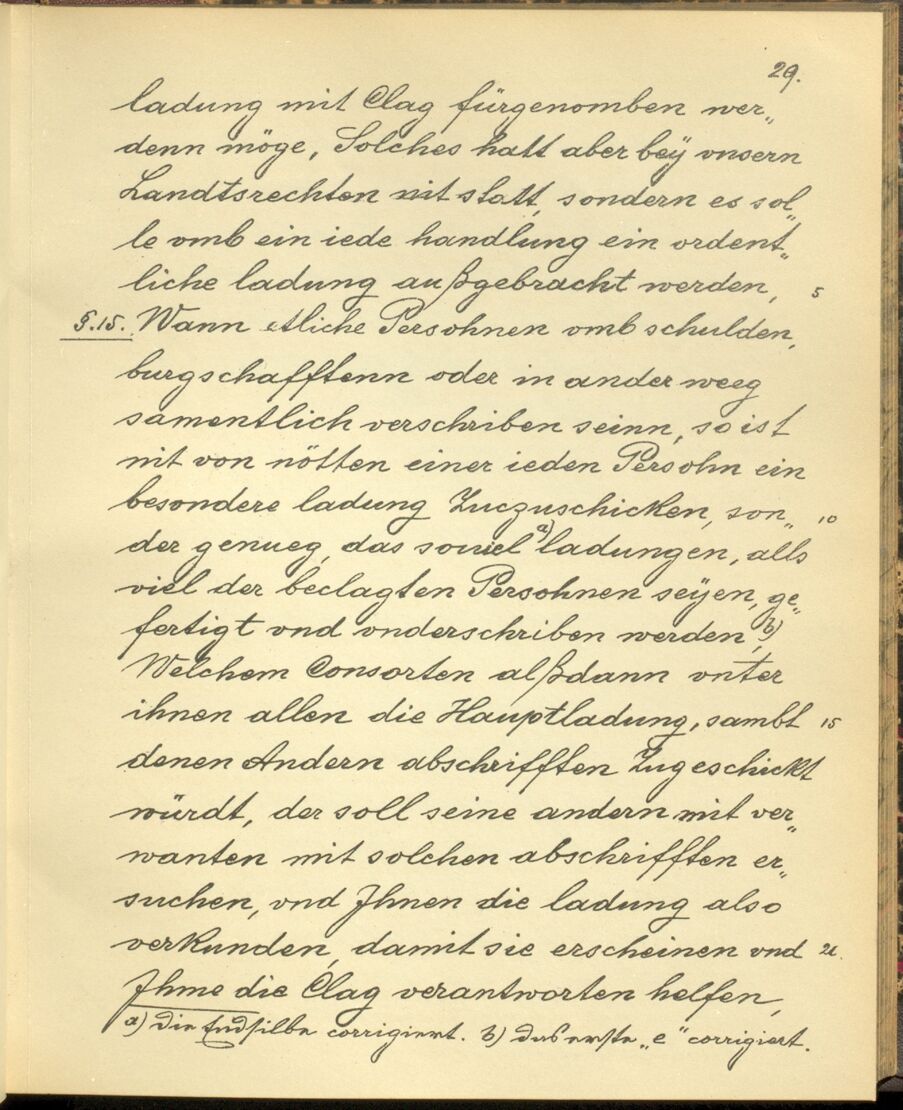 29.
ladung mit Clag fürgenomben wer„
denn möge, Solches hatt aber beÿ vnsern
Landtsrechten nit statt, sondern es sol„
le vmb ein iede handlung ein ordent„
liche ladung außgebracht werden, 5
§.15. Wann etliche Persohnen vmb schulden,
burgschafftenn oder in ander weeg
samentlich verschriben seinn, so ist
nit von nötten einer ieden Persohn ein
besondere ladung Zuezuschicken, son„ 10
der genueg, das souiel a) ladungen, alls
viel der beclagten Persohnen seÿen, ge„
fertigt vnd vnderschriben werden, b)
Welchem Consorten alßdann vnter
ihnen allen die Hauptladung, sambt 15
denen Andern abschrifften Zugeschickt
würdt, der soll seine andern mit ver„
wanten mit solchen abschrifften er„
suchen, vnd Jhnen die ladung also
verkunden, damit sie erscheinen vnd
Jhme die Clag verantworten helfen,
a) die Endsilbe corrigiert. b) das erste „e“ corrigiert.